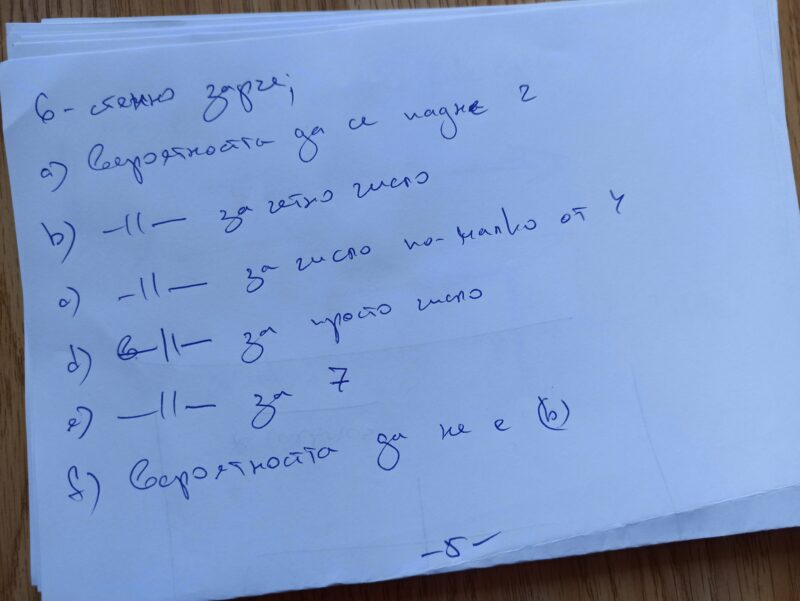 6-стенно зарче;
a) Вероятността да се падне 2
b) -||- за четно число
c) -||- за число по-малко от 4
d) -||- за просто число
e) -||- за 7
f) Вероятността да не е (b)
-5-